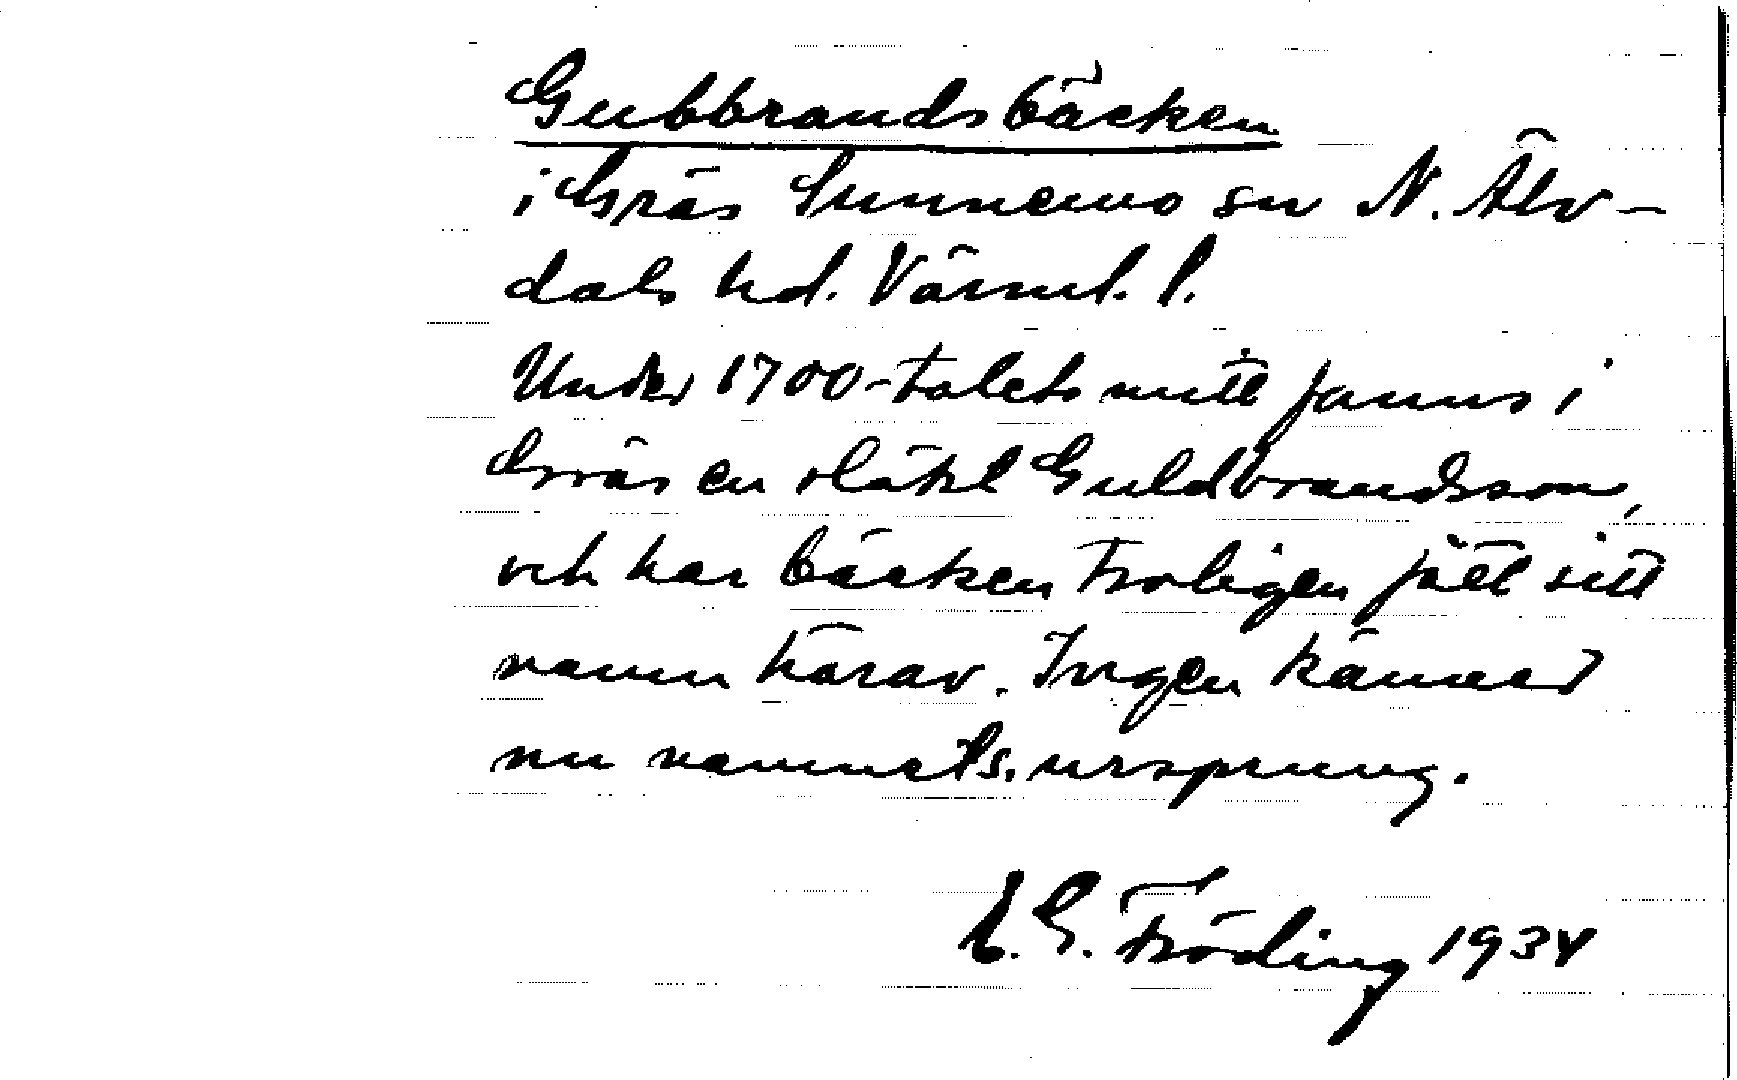 Gubbrandsbäcken
i Gräs Sunnemo sn N. Älv-
dals hd. Värml. l.
Under 1700-talets mitt fanns i
Gräs en släkt Guldbrandsson,
och har bäcken troligen fått sitt
namn härav. Ingen känner
nu namnets ursprung.
E. G. Fröding 1934